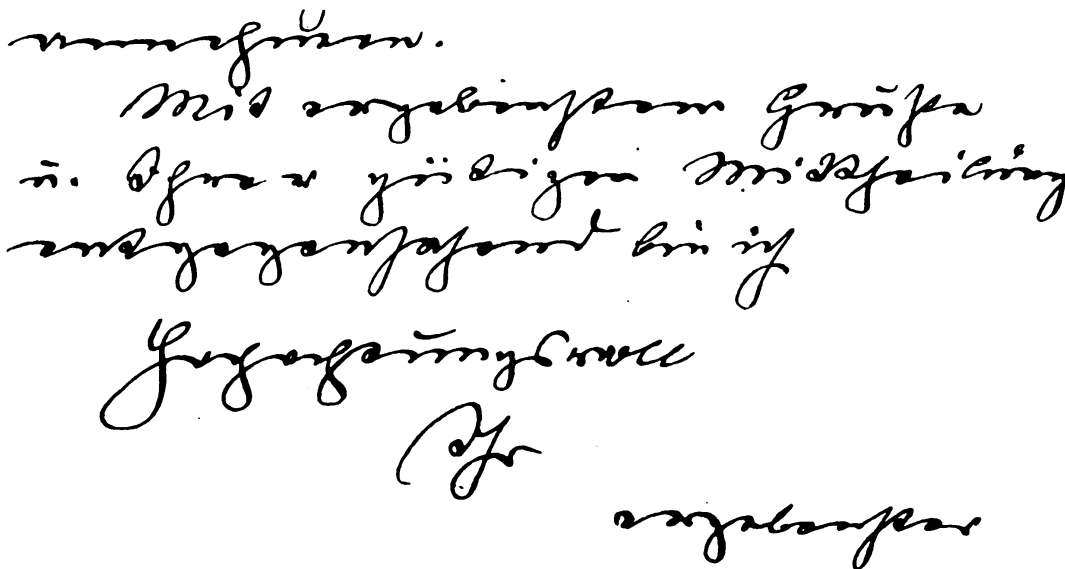 Mit ergebenstem Gruße
u. Ihrer gütigen Mittheilung
entgegensehend bin ich
Hochachtungsvoll
Ihr
ergebenster